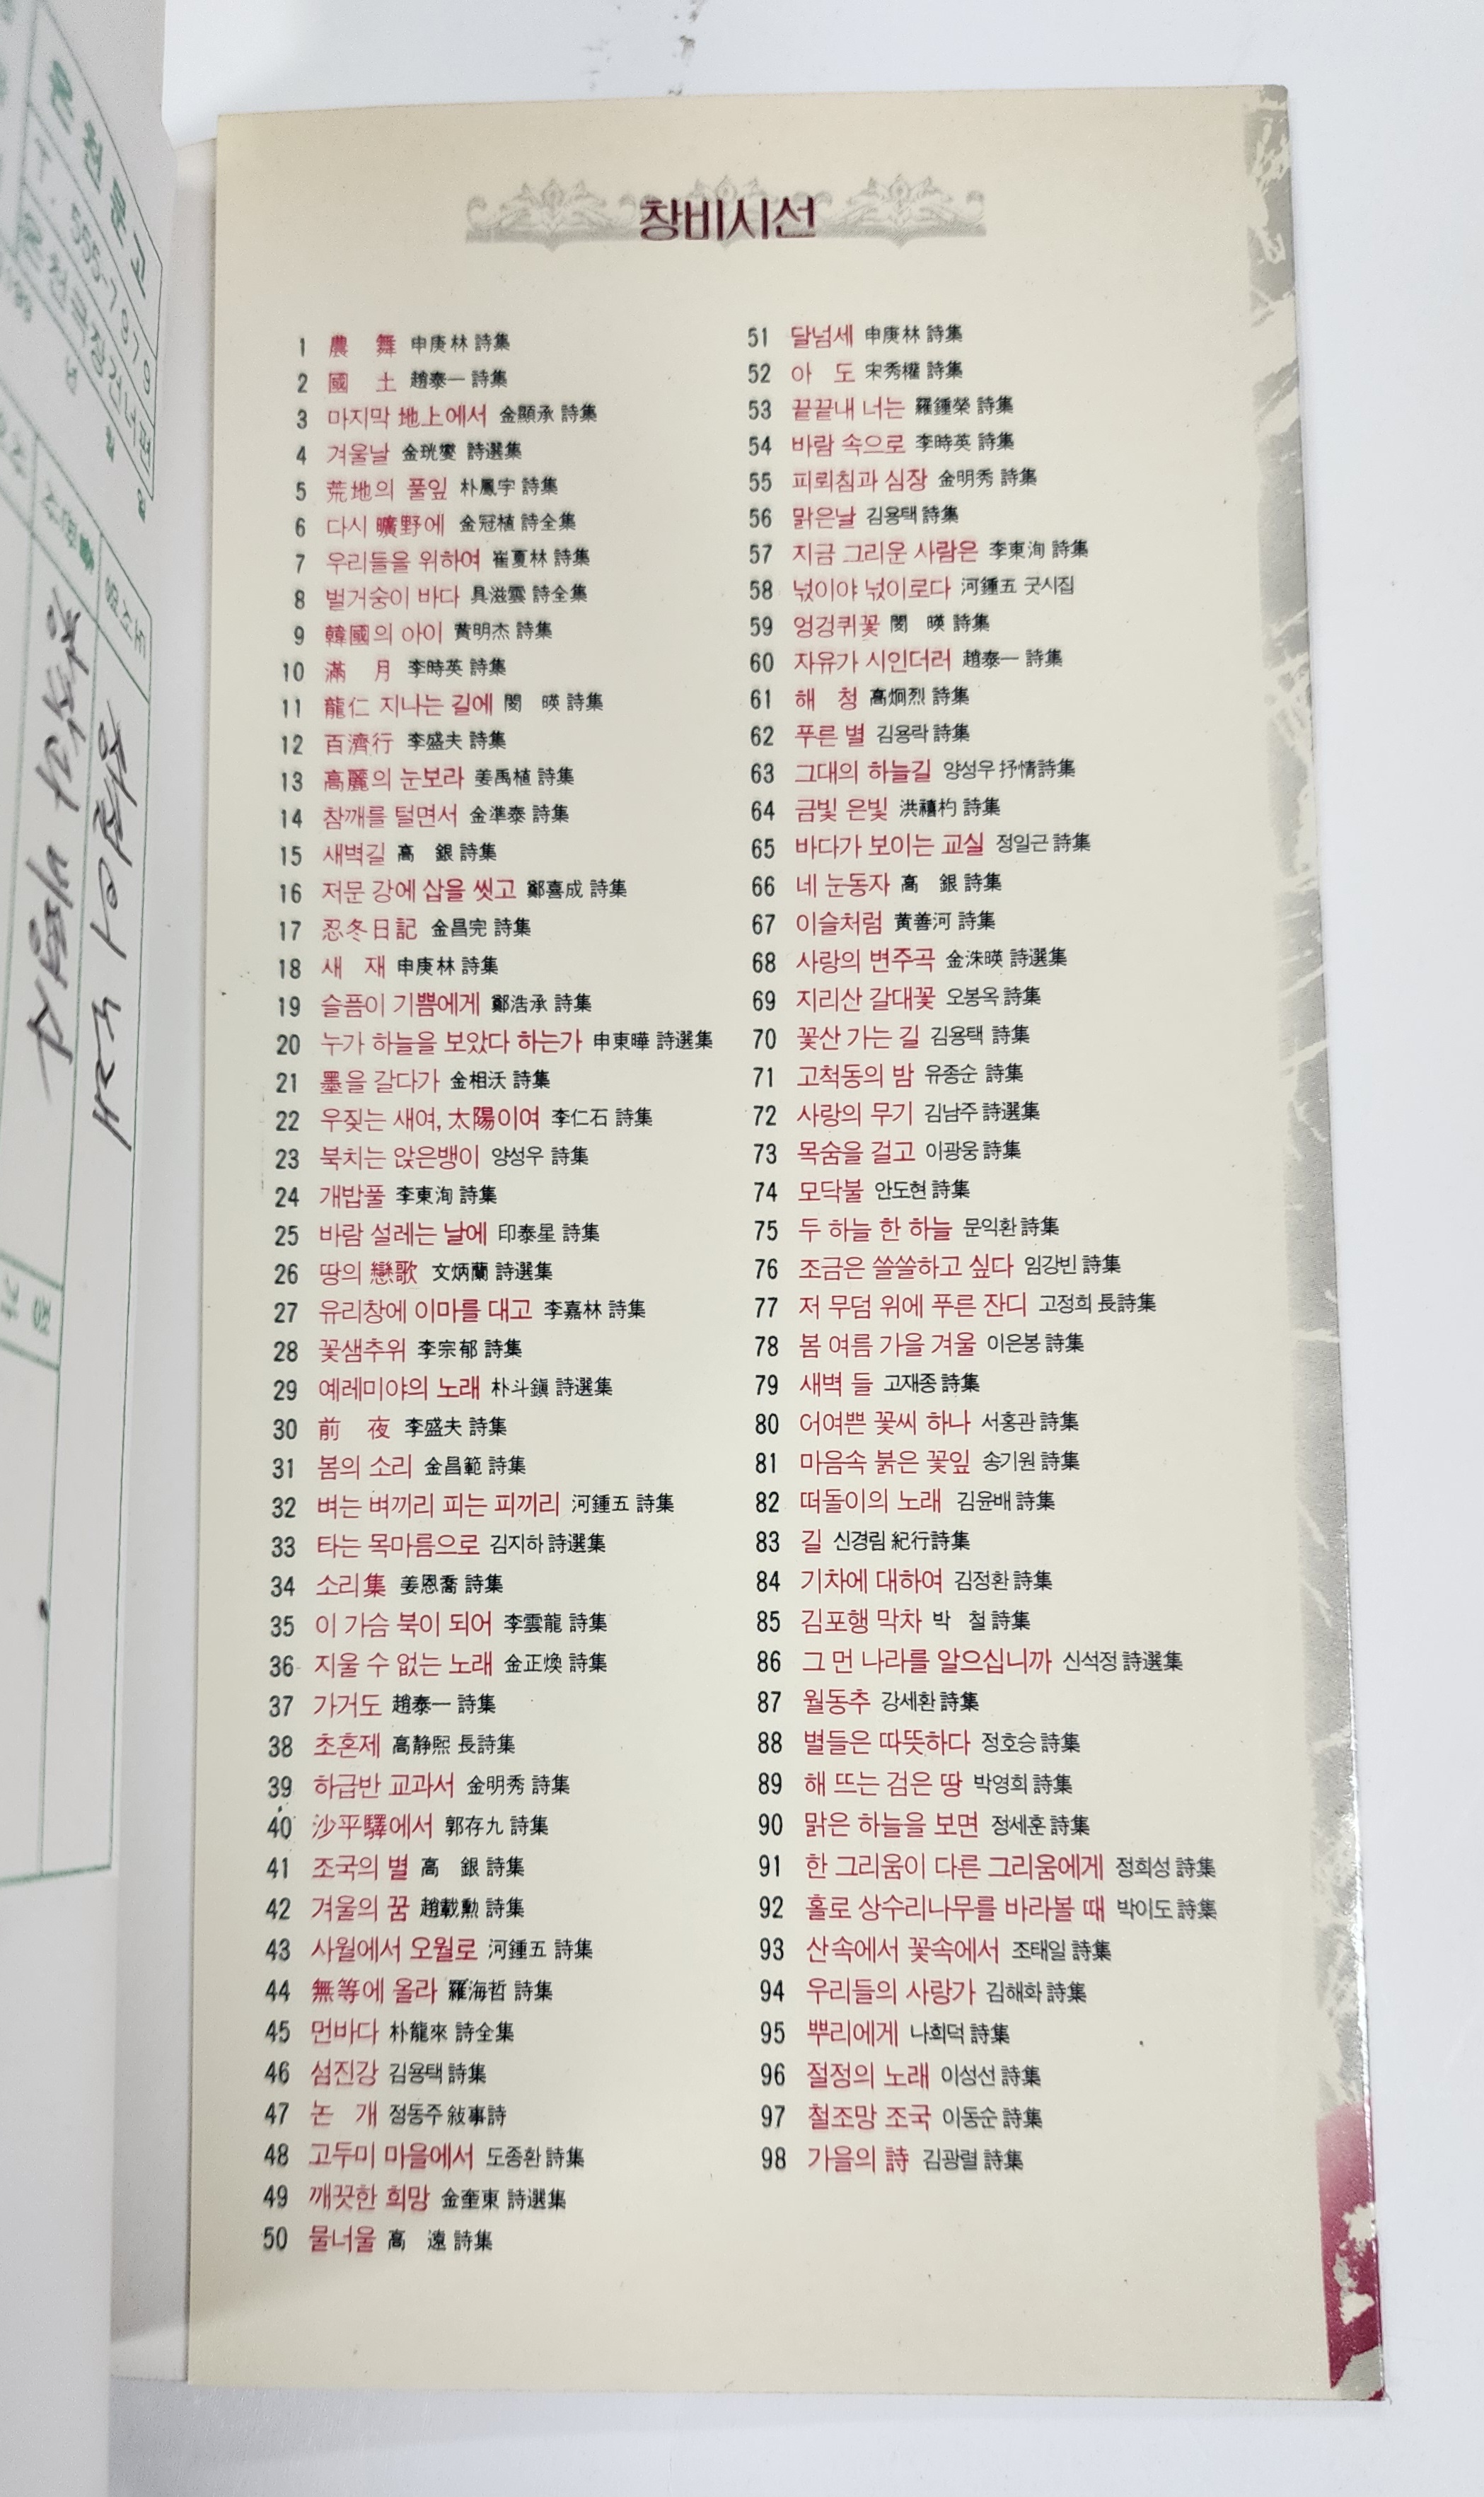 창비시선
1 農 舞 申庚林 詩集
2 國 土 趙泰一 詩集
3 마지막 地上에서 金顯承 詩集
4 겨울날 金珖燮 詩選集
5 荒地의 풀잎 朴鳳宇 詩集
6 다시 曠野에 金冠植 詩全集
7 우리들을 위하여 崔夏林 詩集
8 벌거숭이 바다 具滋雲 詩全集
9 韓國의 아이 黃明杰 詩集
10 滿 月 李時英 詩集
11 龍仁 지나는 길에 閔 暎 詩集
12 百濟行 李盛夫 詩集
13 高麗의 눈보라 姜禹植 詩集
14 참깨를 털면서 金準泰 詩集
15 새벽길 高 銀 詩集
16 저문 강에 삽을 씻고 鄭喜成 詩集
17 忍冬日記 金昌完 詩集
18 새 재 申庚林 詩集
19 슬픔이 기쁨에게 鄭浩承 詩集
20 누가 하늘을 보았다 하는가 申東曄 詩選集
21 墨을 갈다가 金相沃 詩集
22 우짖는 새여, 太陽이여 李仁石 詩集
23 북치는 앉은뱅이 양성우 詩集
24 개밥풀 李東洵 詩集
25 바람 설레는 날에 印泰星 詩集
26 땅의 戀歌 文炳蘭 詩選集
27 유리창에 이마를 대고 李嘉林 詩集
28 꽃샘추위 李宗郁 詩集
29 예레미야의 노래 朴斗鎭 詩選集
30 前 夜 李盛夫 詩集
31 봄의 소리 金昌範 詩集
32 벼는 벼끼리 피는 피끼리 河鍾五 詩集
33 타는 목마름으로 김지하 詩選集
34 소리集 姜恩喬 詩集
35 이 가슴 북이 되어 李雲龍 詩集
36 지울 수 없는 노래 金正煥 詩集
37 가거도 趙泰一 詩集
38 초혼제 高靜熙 長詩集
39 하급반 교과서 金明秀 詩集
40 沙平驛에서 郭在九 詩集
41 조국의 별 高 銀 詩集
42 겨울의 꿈 趙載勳 詩集
43 사월에서 오월로 河鍾五 詩集
44 無等에 올라 羅海哲 詩集
45 먼바다 朴龍來 詩全集
46 섬진강 김용택 詩集
47 논 개 정동주 敍事詩
48 고두미 마을에서 도종환 詩集
49 깨끗한 희망 金奎東 詩選集
50 물너울 高 遠 詩集
51 달넘세 申庚林 詩集
52 아 도 宋秀權 詩集
53 끝끝내 너는 羅鍾榮 詩集
54 바람 속으로 李時英 詩集
55 피뢰침과 심장 金明秀 詩集
56 맑은날 김용택 詩集
57 지금 그리운 사람은 李東洵 詩集
58 넋이야 넋이로다 河鍾五 굿시집
59 엉겅퀴꽃 閔 暎 詩集
60 자유가 시인더러 趙泰一 詩集
61 해 청 高炯烈 詩集
62 푸른 별 김용락 詩集
63 그대의 하늘길 양성우 抒情詩集
64 금빛 은빛 洪禧杓 詩集
65 바다가 보이는 교실 정일근 詩集
66 네 눈동자 高 銀 詩集
67 이슬처럼 黃善河 詩集
68 사랑의 변주곡 金洙暎 詩選集
69 지리산 갈대꽃 오봉옥 詩集
70 꽃산 가는 길 김용택 詩集
71 고척동의 밤 유종순 詩集
72 사랑의 무기 김남주 詩選集
73 목숨을 걸고 이광웅 詩集
74 모닥불 안도현 詩集
75 두 하늘 한 하늘 문익환 詩集
76 조금은 쓸쓸하고 싶다 임강빈 詩集
77 저 무덤 위에 푸른 잔디 고정희 長詩集
78 봄 여름 가을 겨울 이은봉 詩集
79 새벽 들 고재종 詩集
80 어여쁜 꽃씨 하나 서홍관 詩集
81 마음속 붉은 꽃잎 송기원 詩集
82 떠돌이의 노래 김윤배 詩集
83 길 신경림 紀行詩集
84 기차에 대하여 김정환 詩集
85 김포행 막차 박 철 詩集
86 그 먼 나라를 알으십니까 신석정 詩選集
87 월동추 강세환 詩集
88 별들은 따뜻하다 정호승 詩集
89 해 뜨는 검은 땅 박영희 詩集
90 맑은 하늘을 보면 정세훈 詩集
91 한 그리움이 다른 그리움에게 정희성 詩集
92 홀로 상수리나무를 바라볼 때 박이도 詩集
93 산속에서 꽃속에서 조태일 詩集
94 우리들의 사랑가 김해화 詩集
95 뿌리에게 나희덕 詩集
96 절정의 노래 이성선 詩集
97 철조망 조국 이동순 詩集
98 가을의 詩 김광렬 詩集
절정의 노래